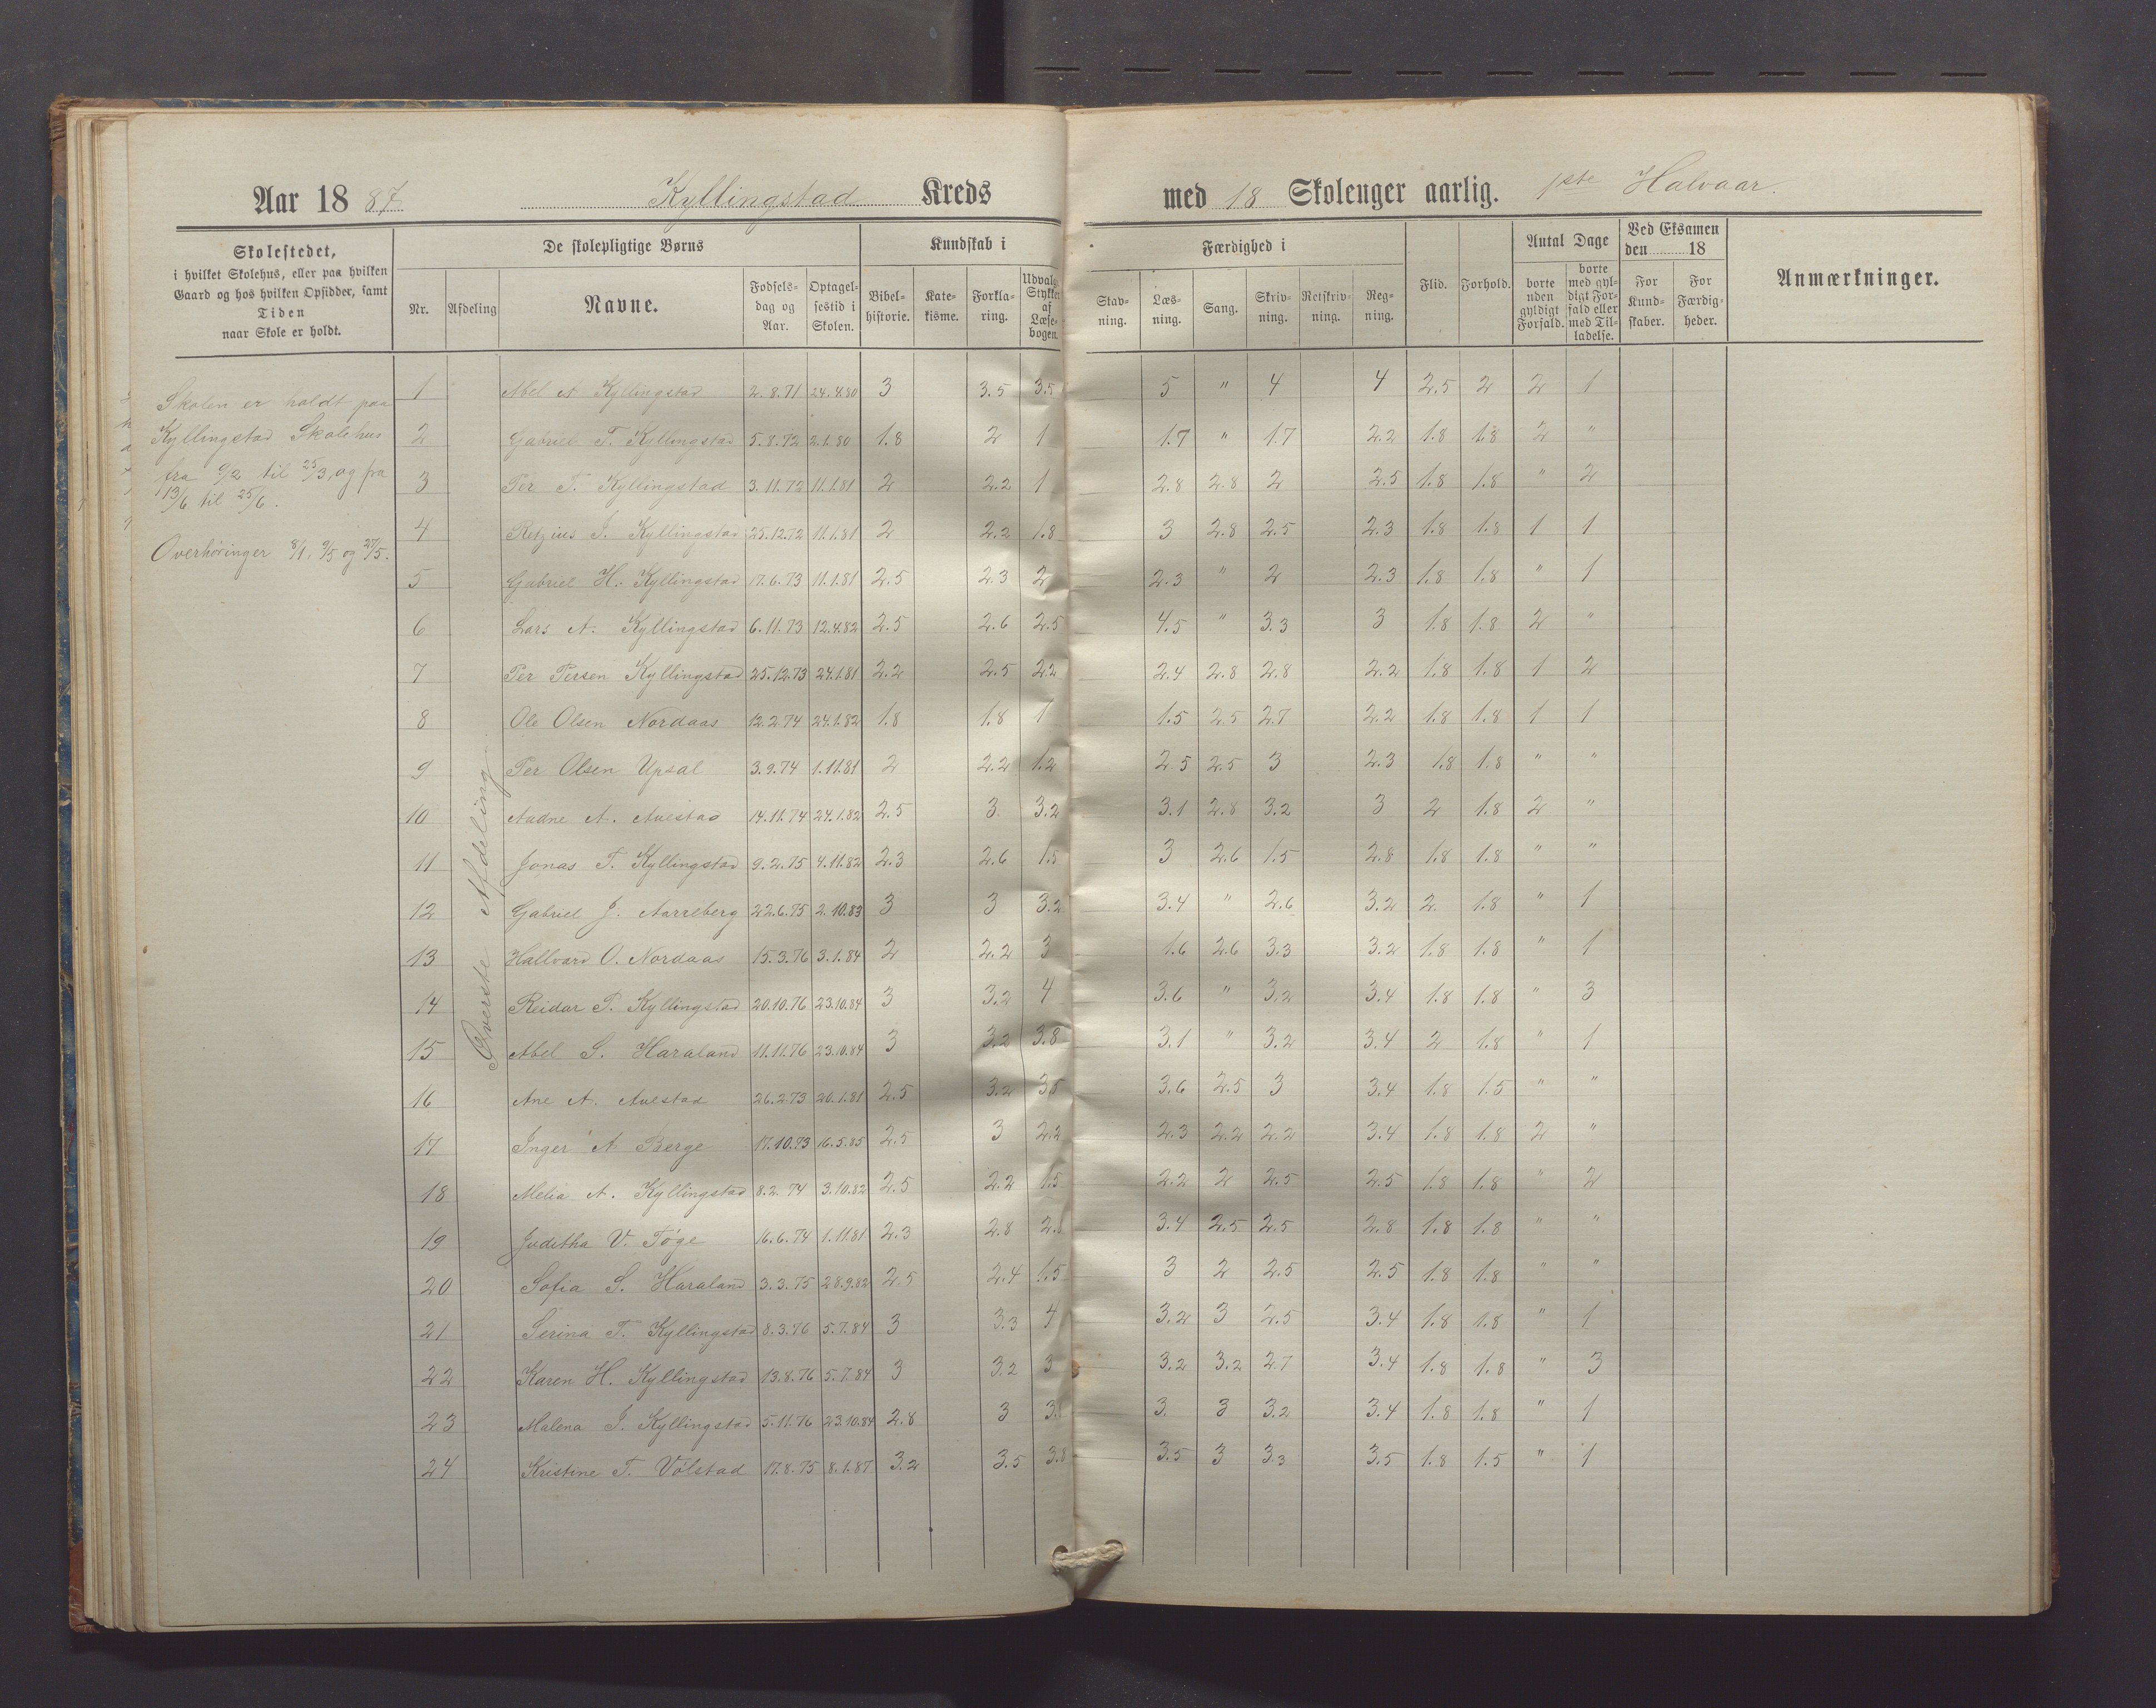 Aar 1887 Kyllingstad Kreds med 18 Skoleuger aarlig. 1ste Halvaar.
Skolestedet,
i hvilket Skolehus, eller paa hvilken
Gaard og hos hvilken Opsidder, samt
Tiden
naar Skole er holdt.
De skolepligtige Børns
Nr. Afdeling Navne. Fødselsdag og Aar. Optagelsestid i Skolen.
Kundskab i
Bibelhistorie. Katekisme. Forklaring. Udvalgte Stykker af Læsebogen.
Færdighed i
Stavning. Læsning. Sang. Skrivning. Retskrivning. Regning.
Flid. Forhold.
Antal Dage
borte uden gyldigt Forfald. borte med gyldigt Forfald eller med Tilladelse.
Ved Eksamen
den 18
For Kundskaber. For Færdigheder.
Anmærkninger.
Skolen er holdt paa
Kyllingstad Skolehus
fra 9/2 til 25/3, og fra
13/6 til 25/6.
Overhøringer 8/1, 9/5 og 27/5.
Øverste Afdeling.
1 Abel A Kyllingstad 2.8.71 24.4.80 3 3.5 3.5 5 " 4 4 2.5 2 2 1
2 Gabriel T. Kyllingstad 5.8.72 2.1.80 1.8 2 1 1.7 " 1.7 2.2 1.8 1.8 2 "
3 Per T. Kyllingstad 3.11.72 11.1.81 2 2.2 1 2.8 2.8 2 2.5 1.8 1.8 " 2
4 Retzius J. Kyllingstad 25.12.72 11.1.81 2 2.2 1.8 3 2.8 2.5 2.3 1.8 1.8 1 1
5 Gabriel H. Kyllingstad 17.6.73 11.1.81 2.5 2.3 2 2.3 " 2 2.3 1.8 1.8 " 1
6 Lars A. Kyllingstad 6.11.73 12.4.82 2.5 2.6 2.5 4.5 " 3.3 3 1.8 1.8 2 "
7 Per Persen Kyllingstad 25.12.73 24.1.81 2.2 2.5 2.2 2.4 2.8 2.8 2.2 1.8 1.8 1 2
8 Ole Olsen Nordaas 12.2.74 24.1.82 1.8 1.8 1 1.5 2.5 2.7 2.2 1.8 1.8 1 1
9 Per Olsen Upsal 3.9.74 1.11.81 2 2.2 1.2 2.5 2.5 3 2.3 1.8 1.8 " "
10 Aadne A. Avestad 14.11.74 24.1.82 2.5 3 3.2 3.1 2.8 3.2 3 2 1.8 2 "
11 Jonas T. Kyllingstad 9.2.75 4.11.82 2.3 2.6 1.5 3 2.6 1.5 2.8 1.8 1.8 " "
12 Gabriel J. Aarreberg 22.6.75 2.10.83 3 3 3.2 3.4 " 2.6 3.2 2. 1.8 " 1
13 Hallvard O. Nordaas 15.3.76 3.1.84 2 2.2 3 1.6 2.6 3.3 3.2 1.8 1.8 " 1
14 Reidar P. Kyllingstad 20.10.76 23.10.84 3 3.2 4 3.6 " 3.2 3.4 1.8 1.8 " 3
15 Abel S. Haraland 11.11.76 23.10.84 3 3.2 3.8 3.1 " 3.2 3.4 2 1.8 " 1
16 Ane A. Avestad 26.2.73 20.1.81 2.5 3.2 3.5 3.6 2.5 3 3.4 1.8 1.5 " "
17 Inger A Berge 17.10.73 16.5.85 2.5 3 2.2 2.3 2.2 2.2 3.4 1.8 1.8 2 "
18 Melia A. Kyllingstad 8.2.74 3.10.82 2.5 2.2 1.5 2.2 2 2.5 2.5 1.8 1.8 " 2
19 Juditha V. Tøge 16.6.74 1.11.81 2.3 2.8 2. 3.4 2.5 2.5 2.8 1.8 1.8 " "
20 Sofia S. Haraland 3.3.75 28.9.82 2.5 2.4 1.5 3 2 2.5 2.5 1.8 1.8 " "
21 Serina T. Kyllingstad 8.3.76 5.7.84 3 3.3 4 3.2 3 2.5 3.4 1.8 1.8 " 1
22 Karen H. Kyllingstad 13.8.76 5.7.84 3 3.2 3 3.2 3.2 2.7 3.4 1.8 1.8 " 3
23 Malena J. Kyllingstad 5.11.76 23.10.84 2.8 3 3. 3. 3 3.2 3.4 1.8 1.8 " 1
24 Kristine T. Vølstad 17.8.75 8.1.87 3.2 3.5 3.8 3.5 3 3.3 3.5 1.8 1.5 " 1